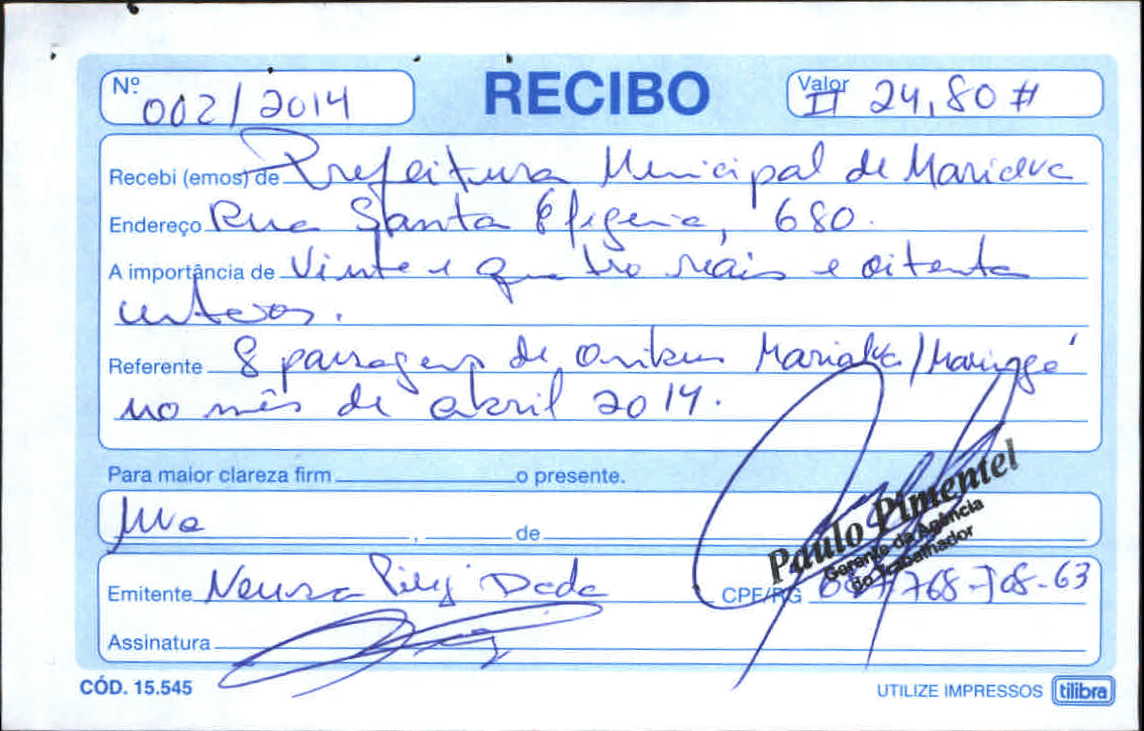 Nº 002/2014 RECIBO Valor # 24,80 #
Recebi (emos) de Prefeitura Municipal de Marialva
Endereço Rua Santa Efigenia, 680.
A importância de Vinte e quatro reais e oitenta
centavos.
Referente 8 passagens de onibus Marialva/Maringá
no mês de abril 2014.
Para maior clareza firm o presente.
Mva , de
Paulo Pimentel
Gerente da Agência
do Trabalhador
Emitente Neusa Dada CPF/RG 768-708-63
Assinatura
CÓD. 15.545 UTILIZE IMPRESSOS tilibra